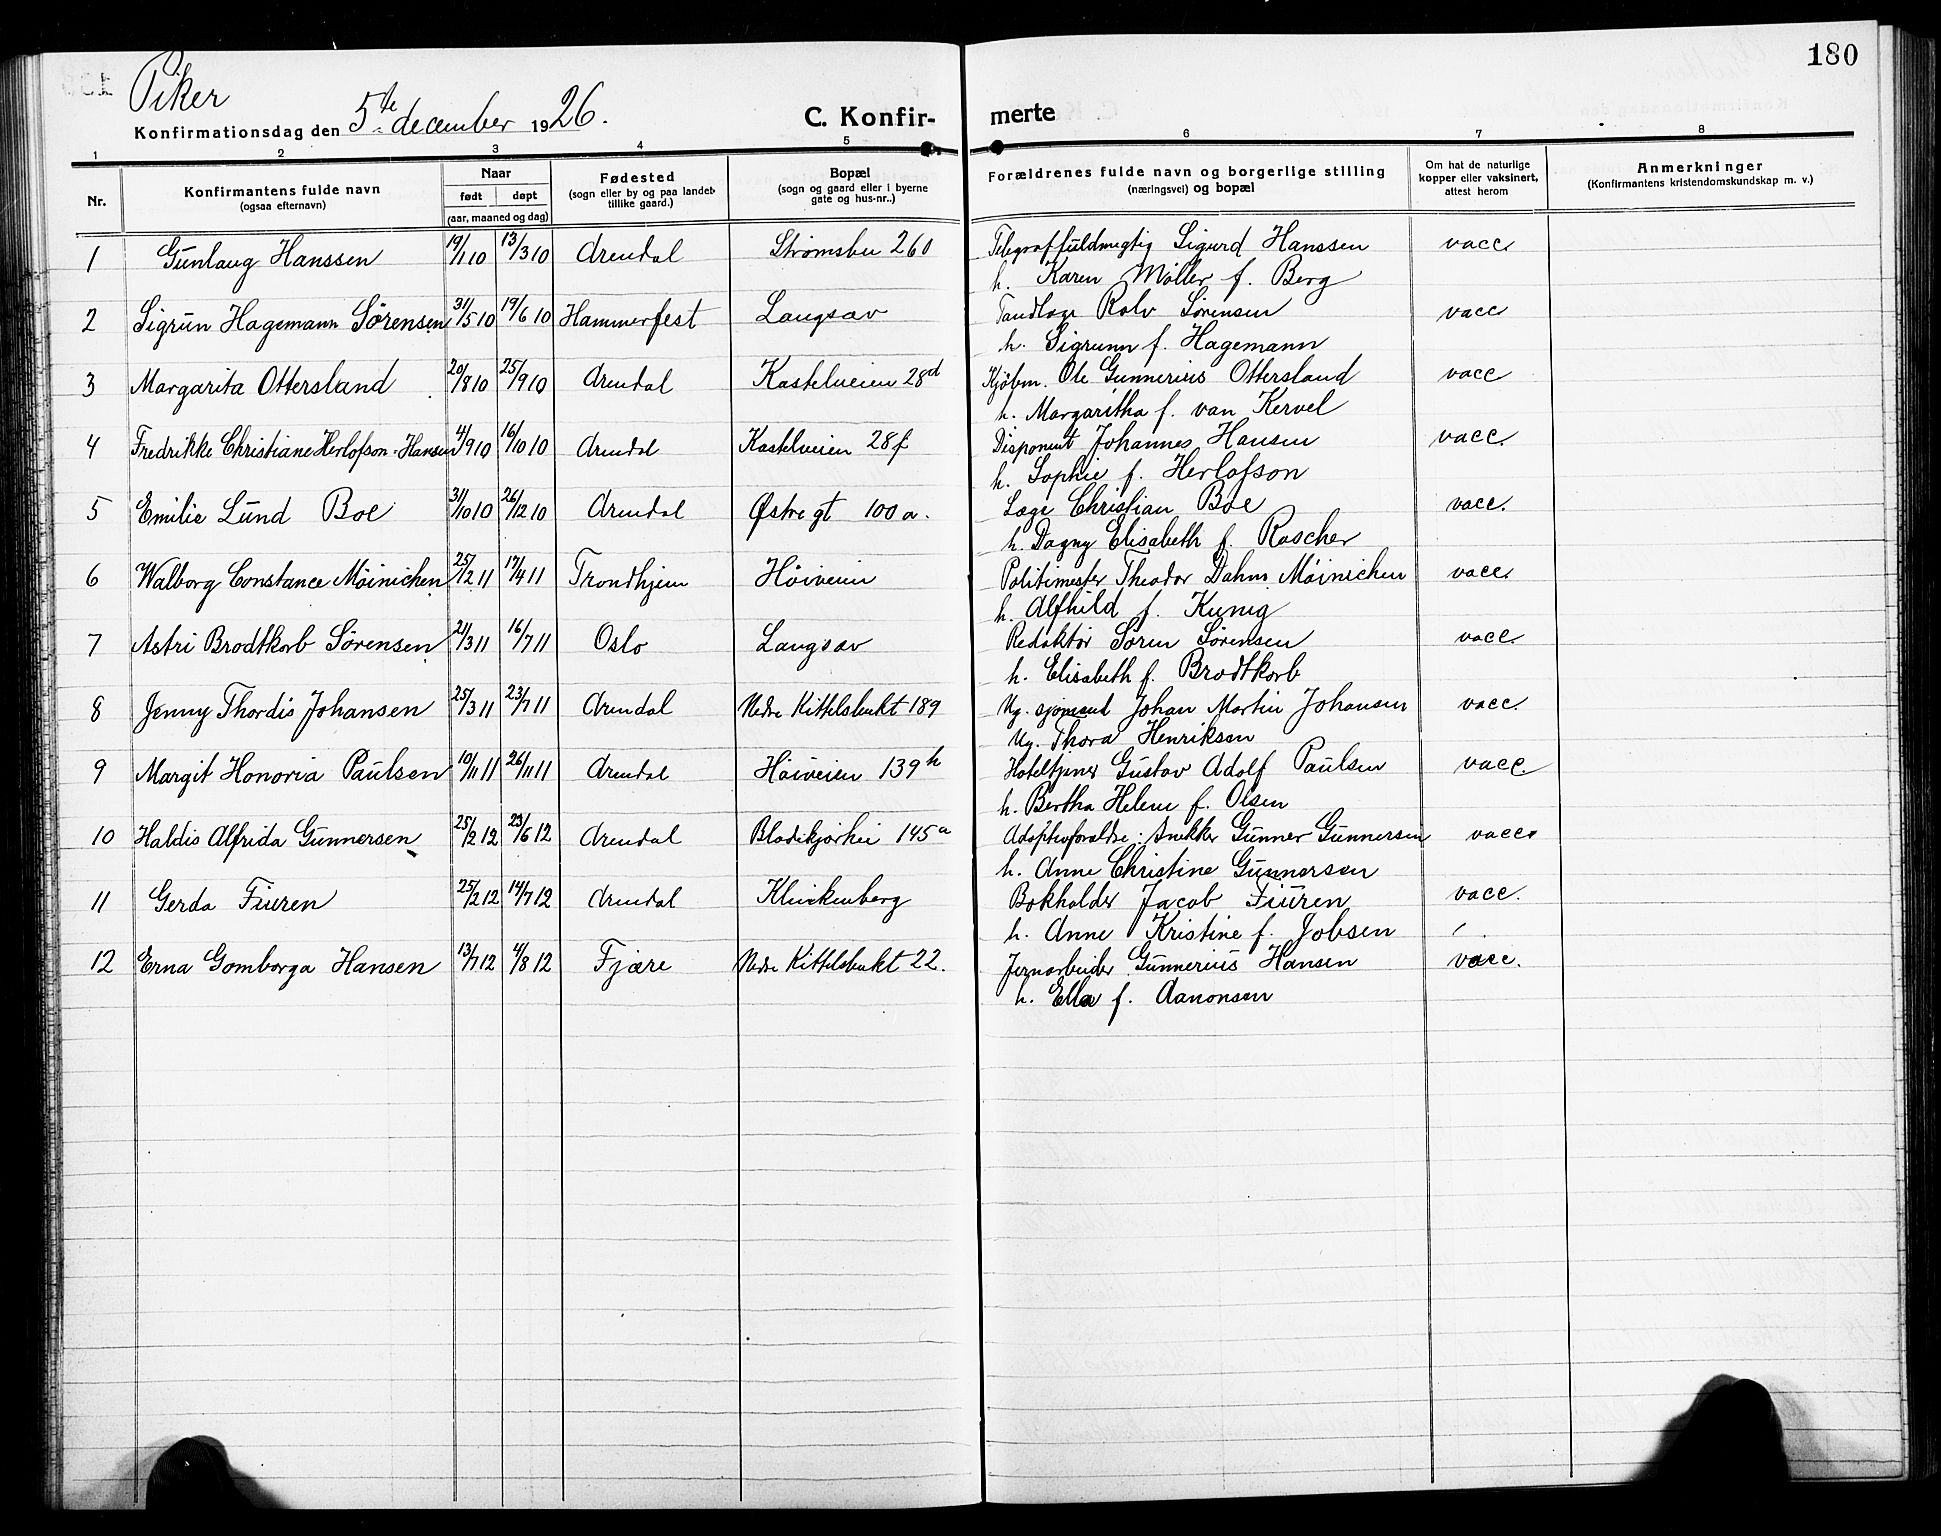 180
Piker
Konfirmationsdag den 5te december 1926.
C. Konfir- merte
1 2 3 4 5 6 7 8
Nr. Konfirmantens fulde navn (ogsaa efternavn) Naar født døpt (aar, maaned og dag) Fødested (sogn eller by og paa landet tillike gaard.) Bopæl (sogn og gaard eller i byerne gate og hus-nr..) Forældrenes fulde navn og borgerlige stilling (næringsvei) og bopæl Om hat de naturlige kopper eller vaksinert, attest herom Anmerkninger (Konfirmantens kristendomskundskap m. v.)
1 Gunlaug Hanssen 19/1 10 13/3 10 Arendal Strømsbu 260 Telegraffuldmegtig Sigurd Hanssen vacc.
h. Karen Møller f. Berg
2 Sigrun Hagemann Sörensen 31/5 10 19/6 10 Hammerfest Langsæv Tandlæge Rolv Sørensen vacc
h. Sigrunn f. Hagemann
3 Margarita Ottersland 20/8 10 25/9 10 Arendal Kastelveien 28d Kjøbm. Ole Gunnerius Ottersland vacc
h. Margaritha f. van Kervel
4 Fredrikke Christiane Herlofson-Hansen 4/9 10 16/10 10 Arendal Kastelveien 28f Disponent Johannes Hansen vacc.
h. Sophie f. Herlofson
5 Emilie Lund Boe 31/10 10 26/12 10 Arendal Østregt 100a. Læge Christian Boe vacc.
h. Dagny Elisabeth f. Rascher
6 Walborg Constance Möinichen 25/2 11 17/4 11 Trondhjem Høiveien Politimester Theodor Dahm Möinichen vacc.
h. Alfhild f. Kunig
7 Astri Brodtkorb Sörensen 21/3 11 16/7 11 Oslo Langsæv Redaktør Søren Sörensen vacc.
h. Elisabeth f. Brodtkorb
8 Jenny Thordis Johansen 25/3 11 23/7 11 Arendal Nedre Kittelsbukt 189 Ug. sjømand Johan Martin Johansen vacc.
Ug. Thora Henriksen
9 Margit Honoria Paulsen 10/11 11 26/11 11 Arendal Høiveien 139h Hoteltjener Gustav Adolf Paulsen vacc.
h. Bertha Helene f. Olsen
10 Haldis Alfrida Gunnersen 25/2 12 23/6 12 Arendal Blødekjørhei 145a Adoptivforældre: Snekker Gunner Gunnersen vacc.
h. Anne Christine Gunnersen
11 Gerda Fiuren 25/2 12 14/7 12 Arendal Klinkenberg Bokholder Jacob Fiuren vacc.
h. Anne Kristine f. Jobsen
12 Erna Gomborga Hansen 13/7 12 4/8 12 Fjære Nedre Kittelsbukt 22. Jernarbeider Gunnerius Hansen vacc.
h. Ella f. Aanonsen